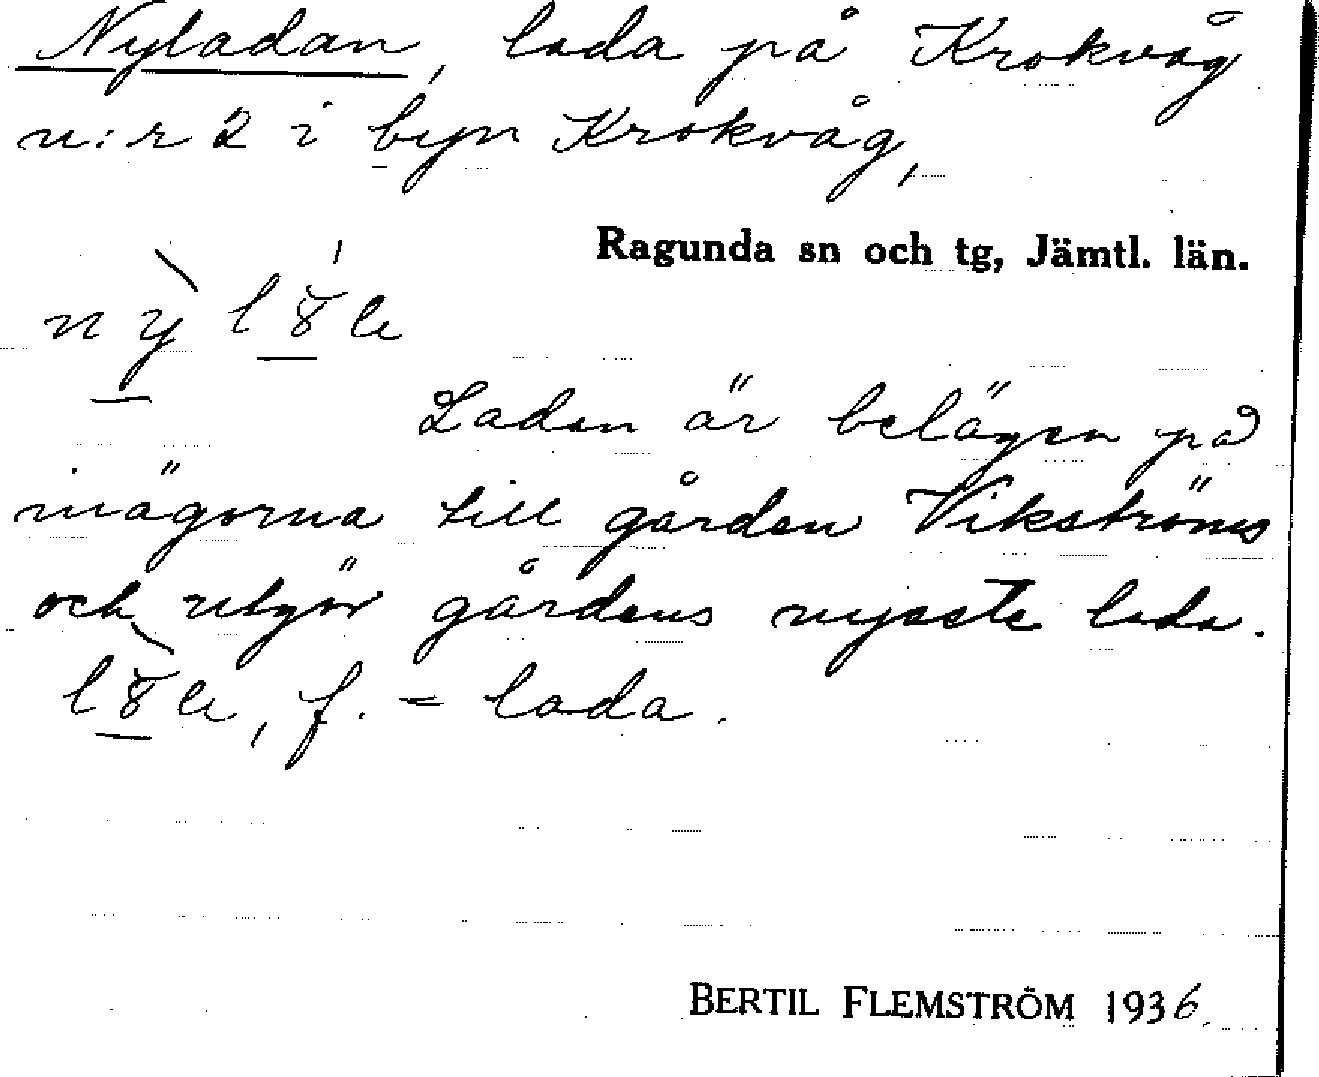 Nyladan, lada på Krokvåg
n:r 2 i byn Krokvåg,
Ragunda sn och tg, Jämtl. län.
Ladan är belägen på
inägorna till gården Vikströms
och utgör gårdens nyaste lada.
f. = lada.
BERTIL FLEMSTRÖM 1936